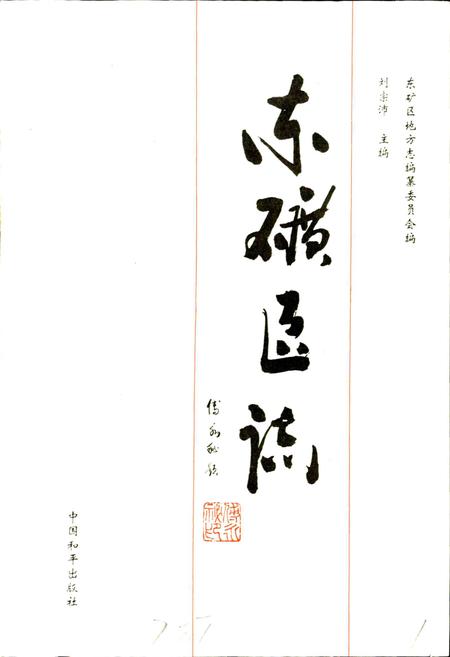 东矿区地方志编纂委员会编
刘宗沛 主编
东礦区誌
中国和平出版社